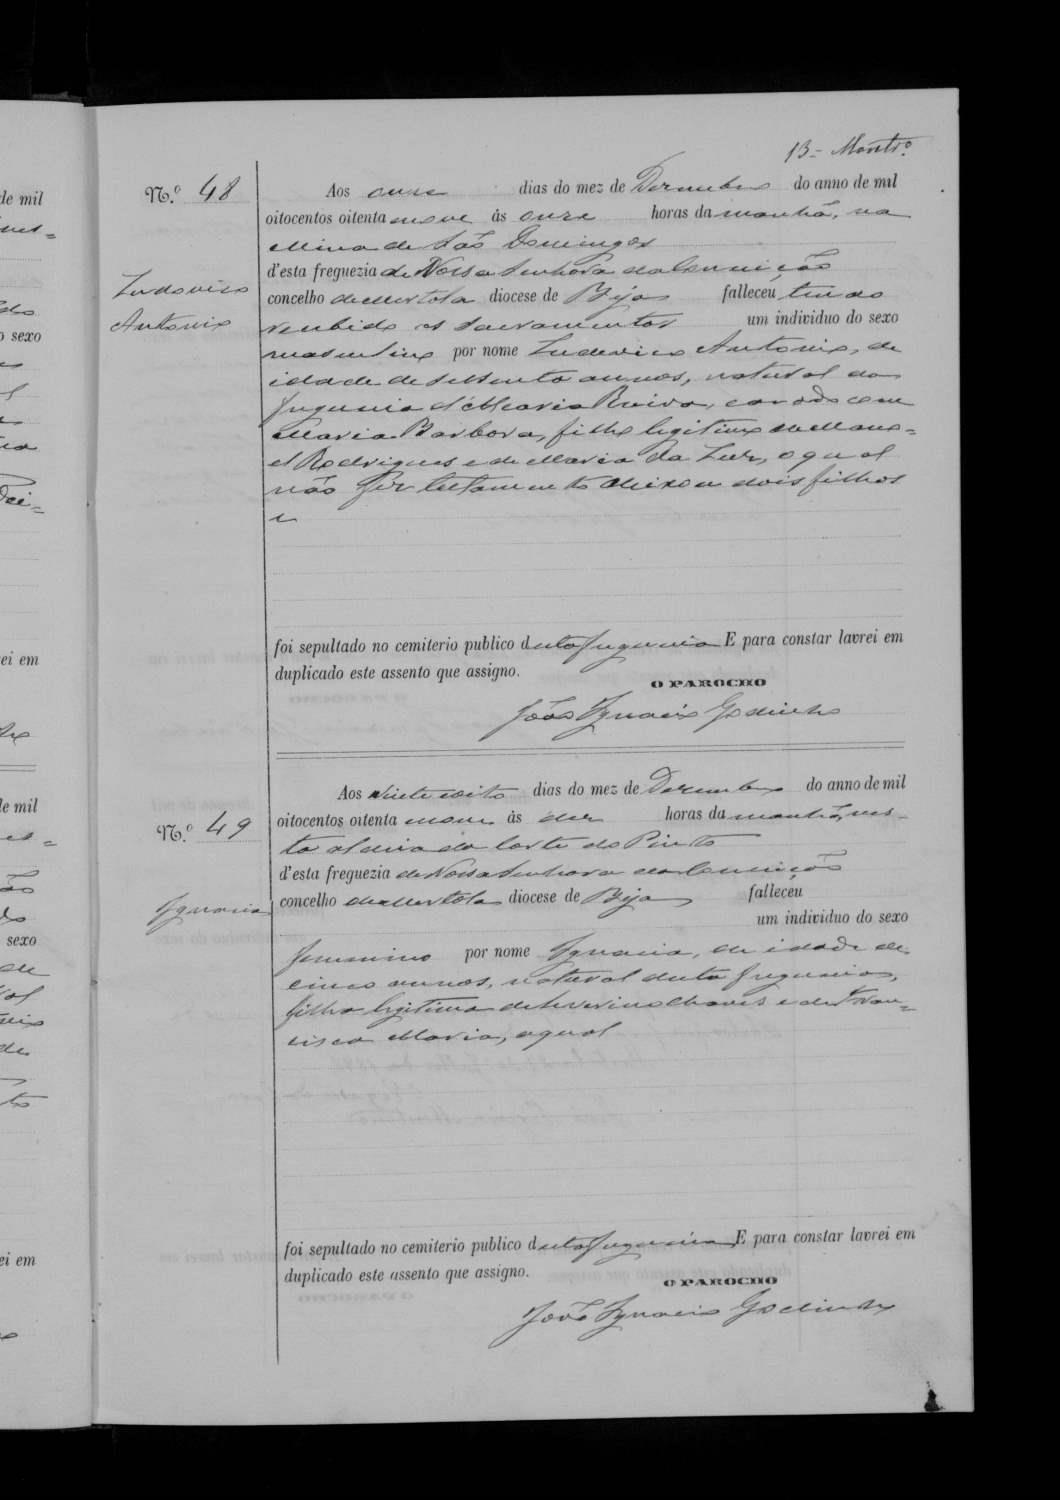 13 = Montrº
N.º 48
Ludovico
Antonio
Aos onze dias do mez de Dezembro do anno de mil
oitocentos oitenta nove ás onze horas da manhã, na
Mina de São Domingos
d'esta freguezia de Nossa Senhora da Conceição
concelho de Mertola diocese de Beja falleceu tendo
recebido os Sacramentos um individuo do sexo
masculino por nome Ludovico Antonio, de
idade de sessenta annos, natural da
freguezia d'
 casado com
Maria Barbora, filho legitimo de Mano=
el Rodrigues e de Maria da Luz, o qual
não fez testamento deixou dois filhos
e
foi sepultado no cemiterio publico desta freguezia E para constar lavrei em
duplicado este assento que assigno.
O PAROCHO
João Ignacio Godinho
N.º 49
Ignacia
Aos vinte oito dias do mez de Dezembro do anno de mil
oitocentos oitenta nove ás dez horas da manhã, nes-
ta aldeia da Corte do Pinto
d'esta freguezia de Nossa Senhora da Conceição
concelho de Mertola diocese de Beja falleceu
um individuo do sexo
femenino por nome Ignacia, de idade de
cinco annos, natural desta freguezia,
filha legitima de Severino Chaves e de Fran=
cisca Maria, a qual
foi sepultado no cemiterio publico desta freguezia E para constar lavrei em
duplicado este assento que assigno.
O PAROCHO
João Ignacio Godinho